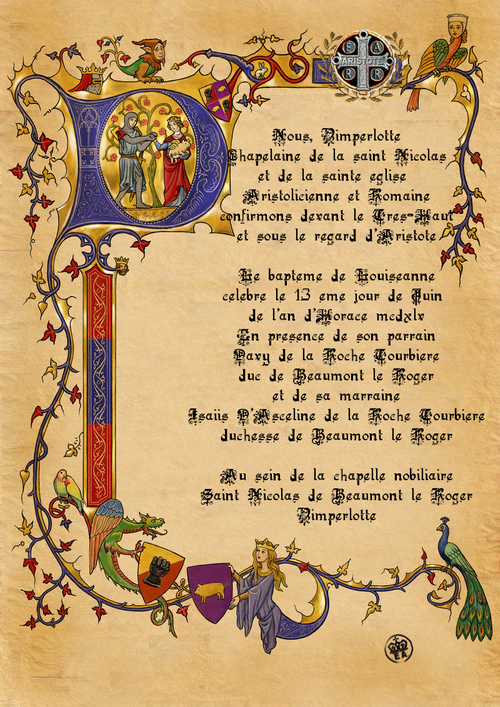 ARISTOTE
Nous, Nimperlotte
Chapelaine de la saint Nicolas
et de la sainte eglise
Aristolicienne et Romaine
confirmons devant le Tres-Haut
et sous le regard d'Aristote
Le bapteme de Louiseanne
celebre le 13 eme jour de Juin
de l'an d'Horace mcdxlv
En presence de son parrain
Davy de la Roche Courbiere
duc de Beaumont le Roger
et de sa marraine
Isaüs D'Asceline de la Roche Courbiere
duchesse de Beaumont le Roger
Au sein de la chapelle nobiliaire
Saint Nicolas de Beaumont le Roger
Nimperlotte